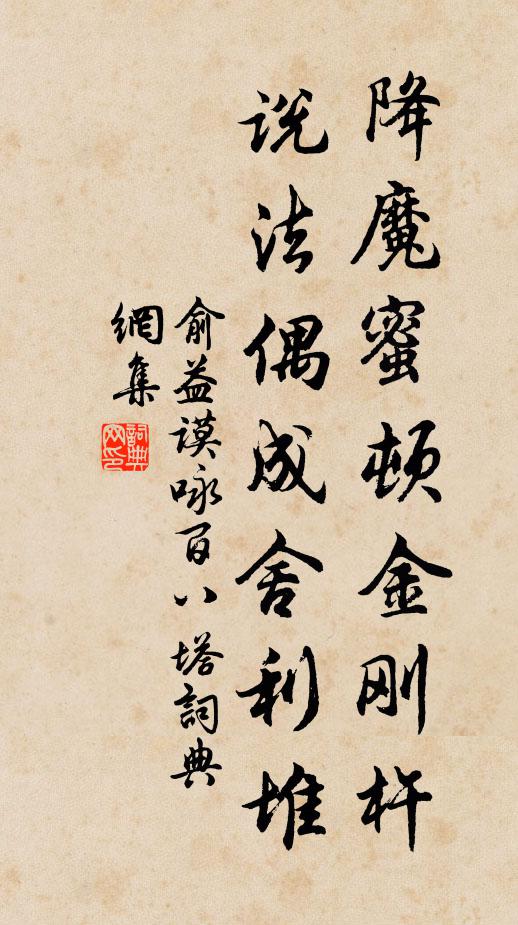 降魔蜜顿金刚杵
说法偶成舍利堆
俞益謨咏百八塔詞典
網集
詞典
网印